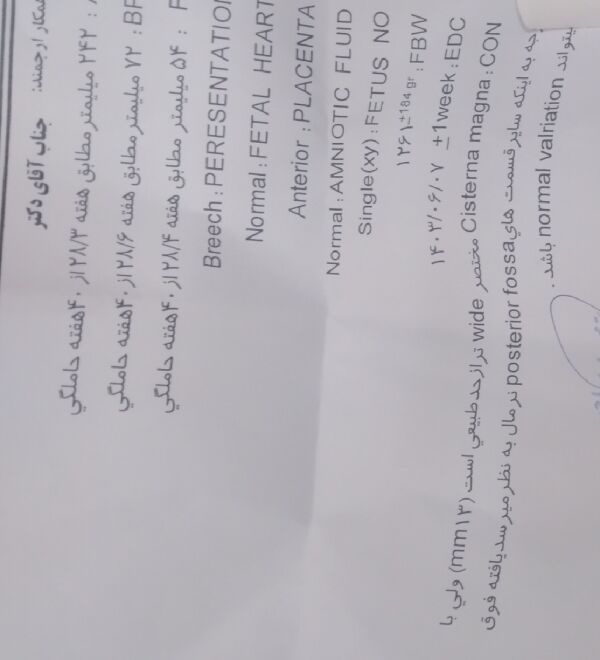 همکار ارجمند: جناب آقای دکتر
: ۲۴۲ میلیمتر مطابق هفته ۲۸/۳ از ۴۰ هفته حاملگي
BP : ۷۲ میلیمتر مطابق هفته ۲۸/۶ از ۴۰ هفته حاملگي
F : ۵۴ میلیمتر مطابق هفته ۲۸/۴ از ۴۰ هفته حاملگي
Breech : PERESENTATION
Normal : FETAL HEART
Anterior : PLACENTA
Normal : AMNIOTIC FLUID
Single(xy) : FETUS NO
۱۲۶۱±184 gr : FBW
۱۴۰۳/۰۶/۰۷ ±1week : EDC
CON : Cisterna magna مختصر wide تر از حد طبیعي است (۱۳mm) ولي با
جه به اینکه سایر قسمت های posterior fossa نرمال به نظر میرسد یافته فوق
یتواند normal valriation باشد .